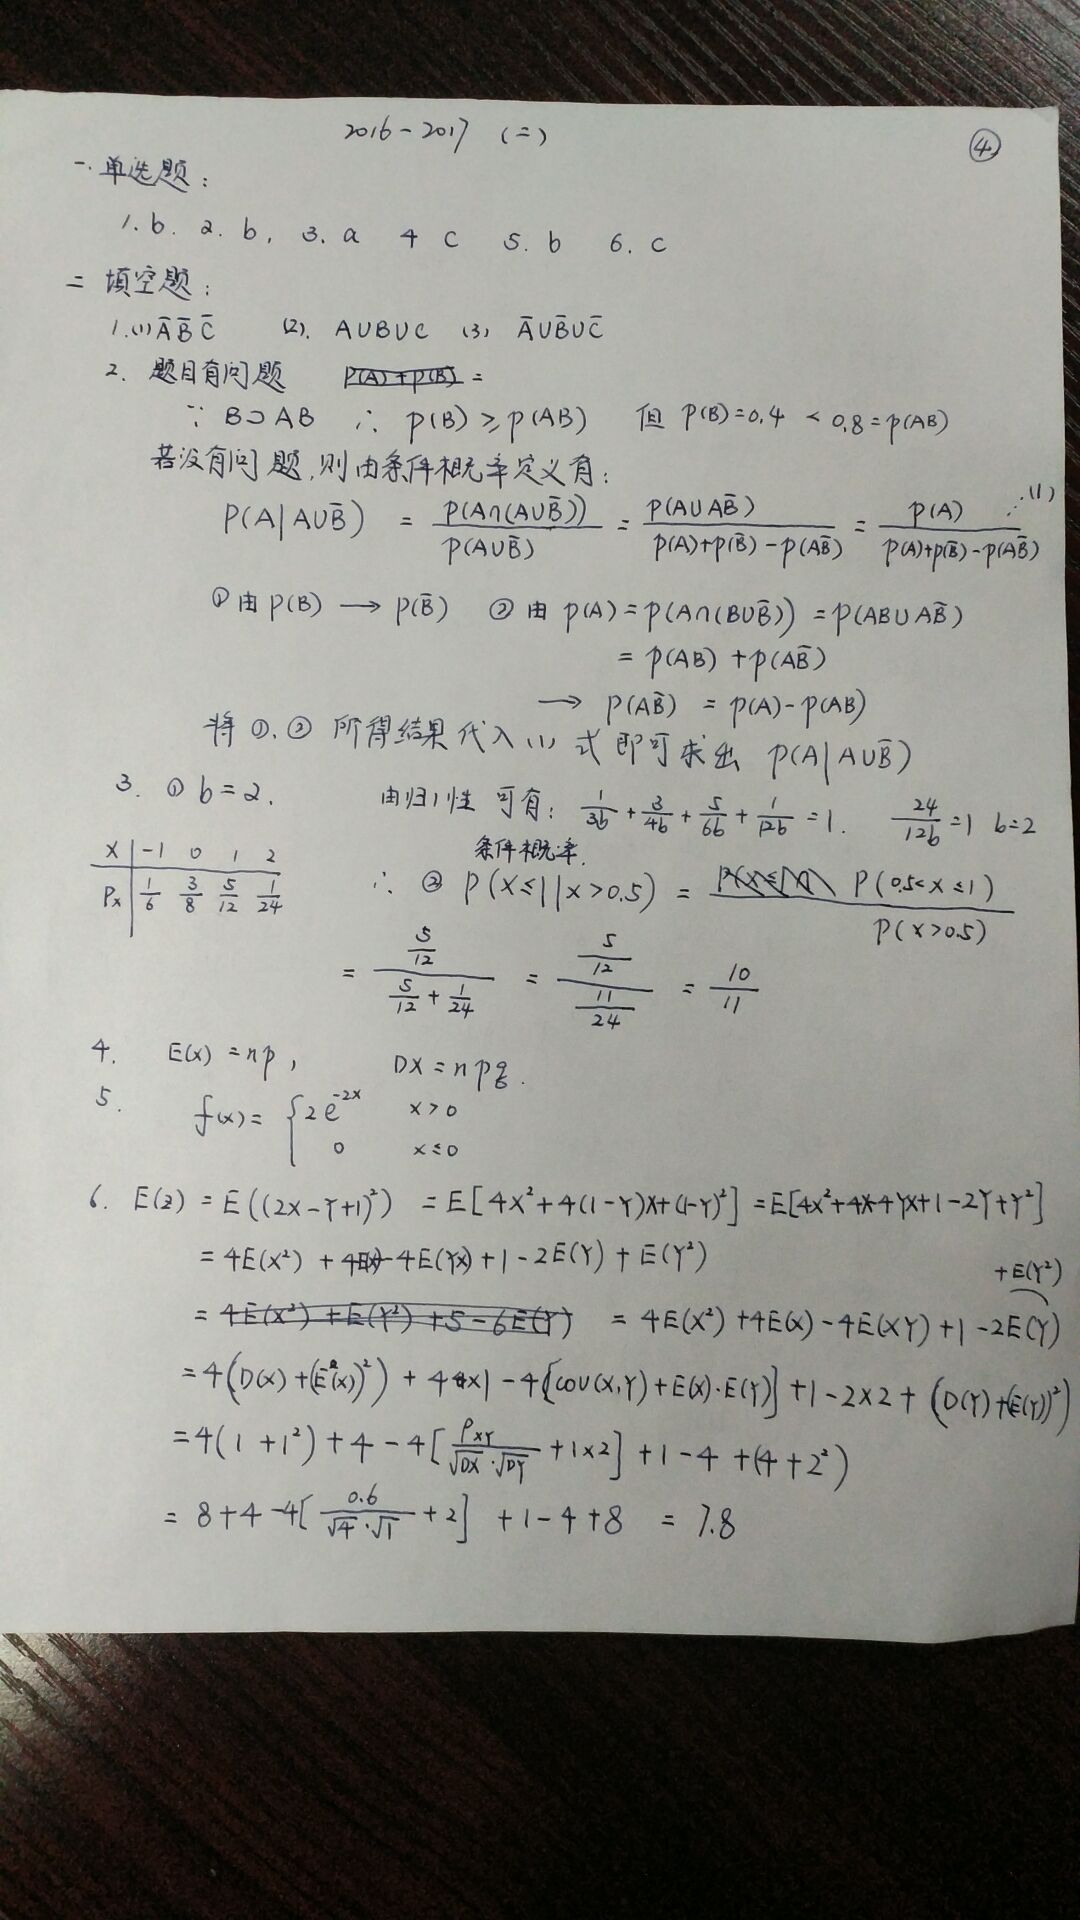 2016-2017 (二)
④
一. 单选题:
1. b. 2. b, 3. a 4 c 5. b 6. c
二 填空题:
1. (1) A̅ B̅ C̅ (2). A∪B∪C (3) A̅∪B̅∪C̅
2. 题目有问题 P(A)+P(B) =
∵ B⊃AB ∴ P(B)≥P(AB) 但 P(B)=0.4 < 0.8=P(AB)
若没有问题,则由条件概率定义有:
P(A|A∪B̅) = P(A∩(A∪B̅))/P(A∪B̅) = P(A∪AB̅)/(P(A)+P(B̅)-P(AB̅)) = P(A)/(P(A)+P(B̅)-P(AB̅)) …(1)
① 由 P(B) → P(B̅) ② 由 P(A)=P(A∩(B∪B̅)) = P(AB∪AB̅)
= P(AB)+P(AB̅)
→ P(AB̅) = P(A)-P(AB)
将①.② 所得结果代入(1)式即可求出 P(A|A∪B̅)
3. ① b=2. 由归1性 可有: 1/3b + 3/4b + 5/6b + 1/12b = 1. 24/12b = 1 b=2
X -1 0 1 2
Px 1/6 3/8 5/12 1/24
条件概率.
∴ ② P(X≤1|X>0.5) = P(0.5<X≤1)/P(X>0.5)
= (5/12)/(5/12 + 1/24) = (5/12)/(11/24) = 10/11
4. E(X)=np, DX=npq.
5. f(x)= { 2e^{-2x} x>0
0 x≤0
6. E(Z) = E((2X-Y+1)²) = E[4X²+4(1-Y)X+(1-Y)²] = E[4X²+4X-4YX+1-2Y+Y²]
= 4E(X²)+4E(X)-4E(YX)+1-2E(Y)+E(Y²)
= 4E(X²)+E(Y²)+5-6E(Y) = 4E(X²)+4E(X)-4E(XY)+1-2E(Y) +E(Y²)
= 4(D(X)+(E(X))²)+4×1-4[COV(X,Y)+E(X)·E(Y)]+1-2×2+(D(Y)+(E(Y))²)
= 4(1+1²)+4-4[ρXY/(√DX·√DY)+1×2]+1-4+(4+2²)
= 8+4-4[0.6/(√4·√1)+2]+1-4+8 = 7.8